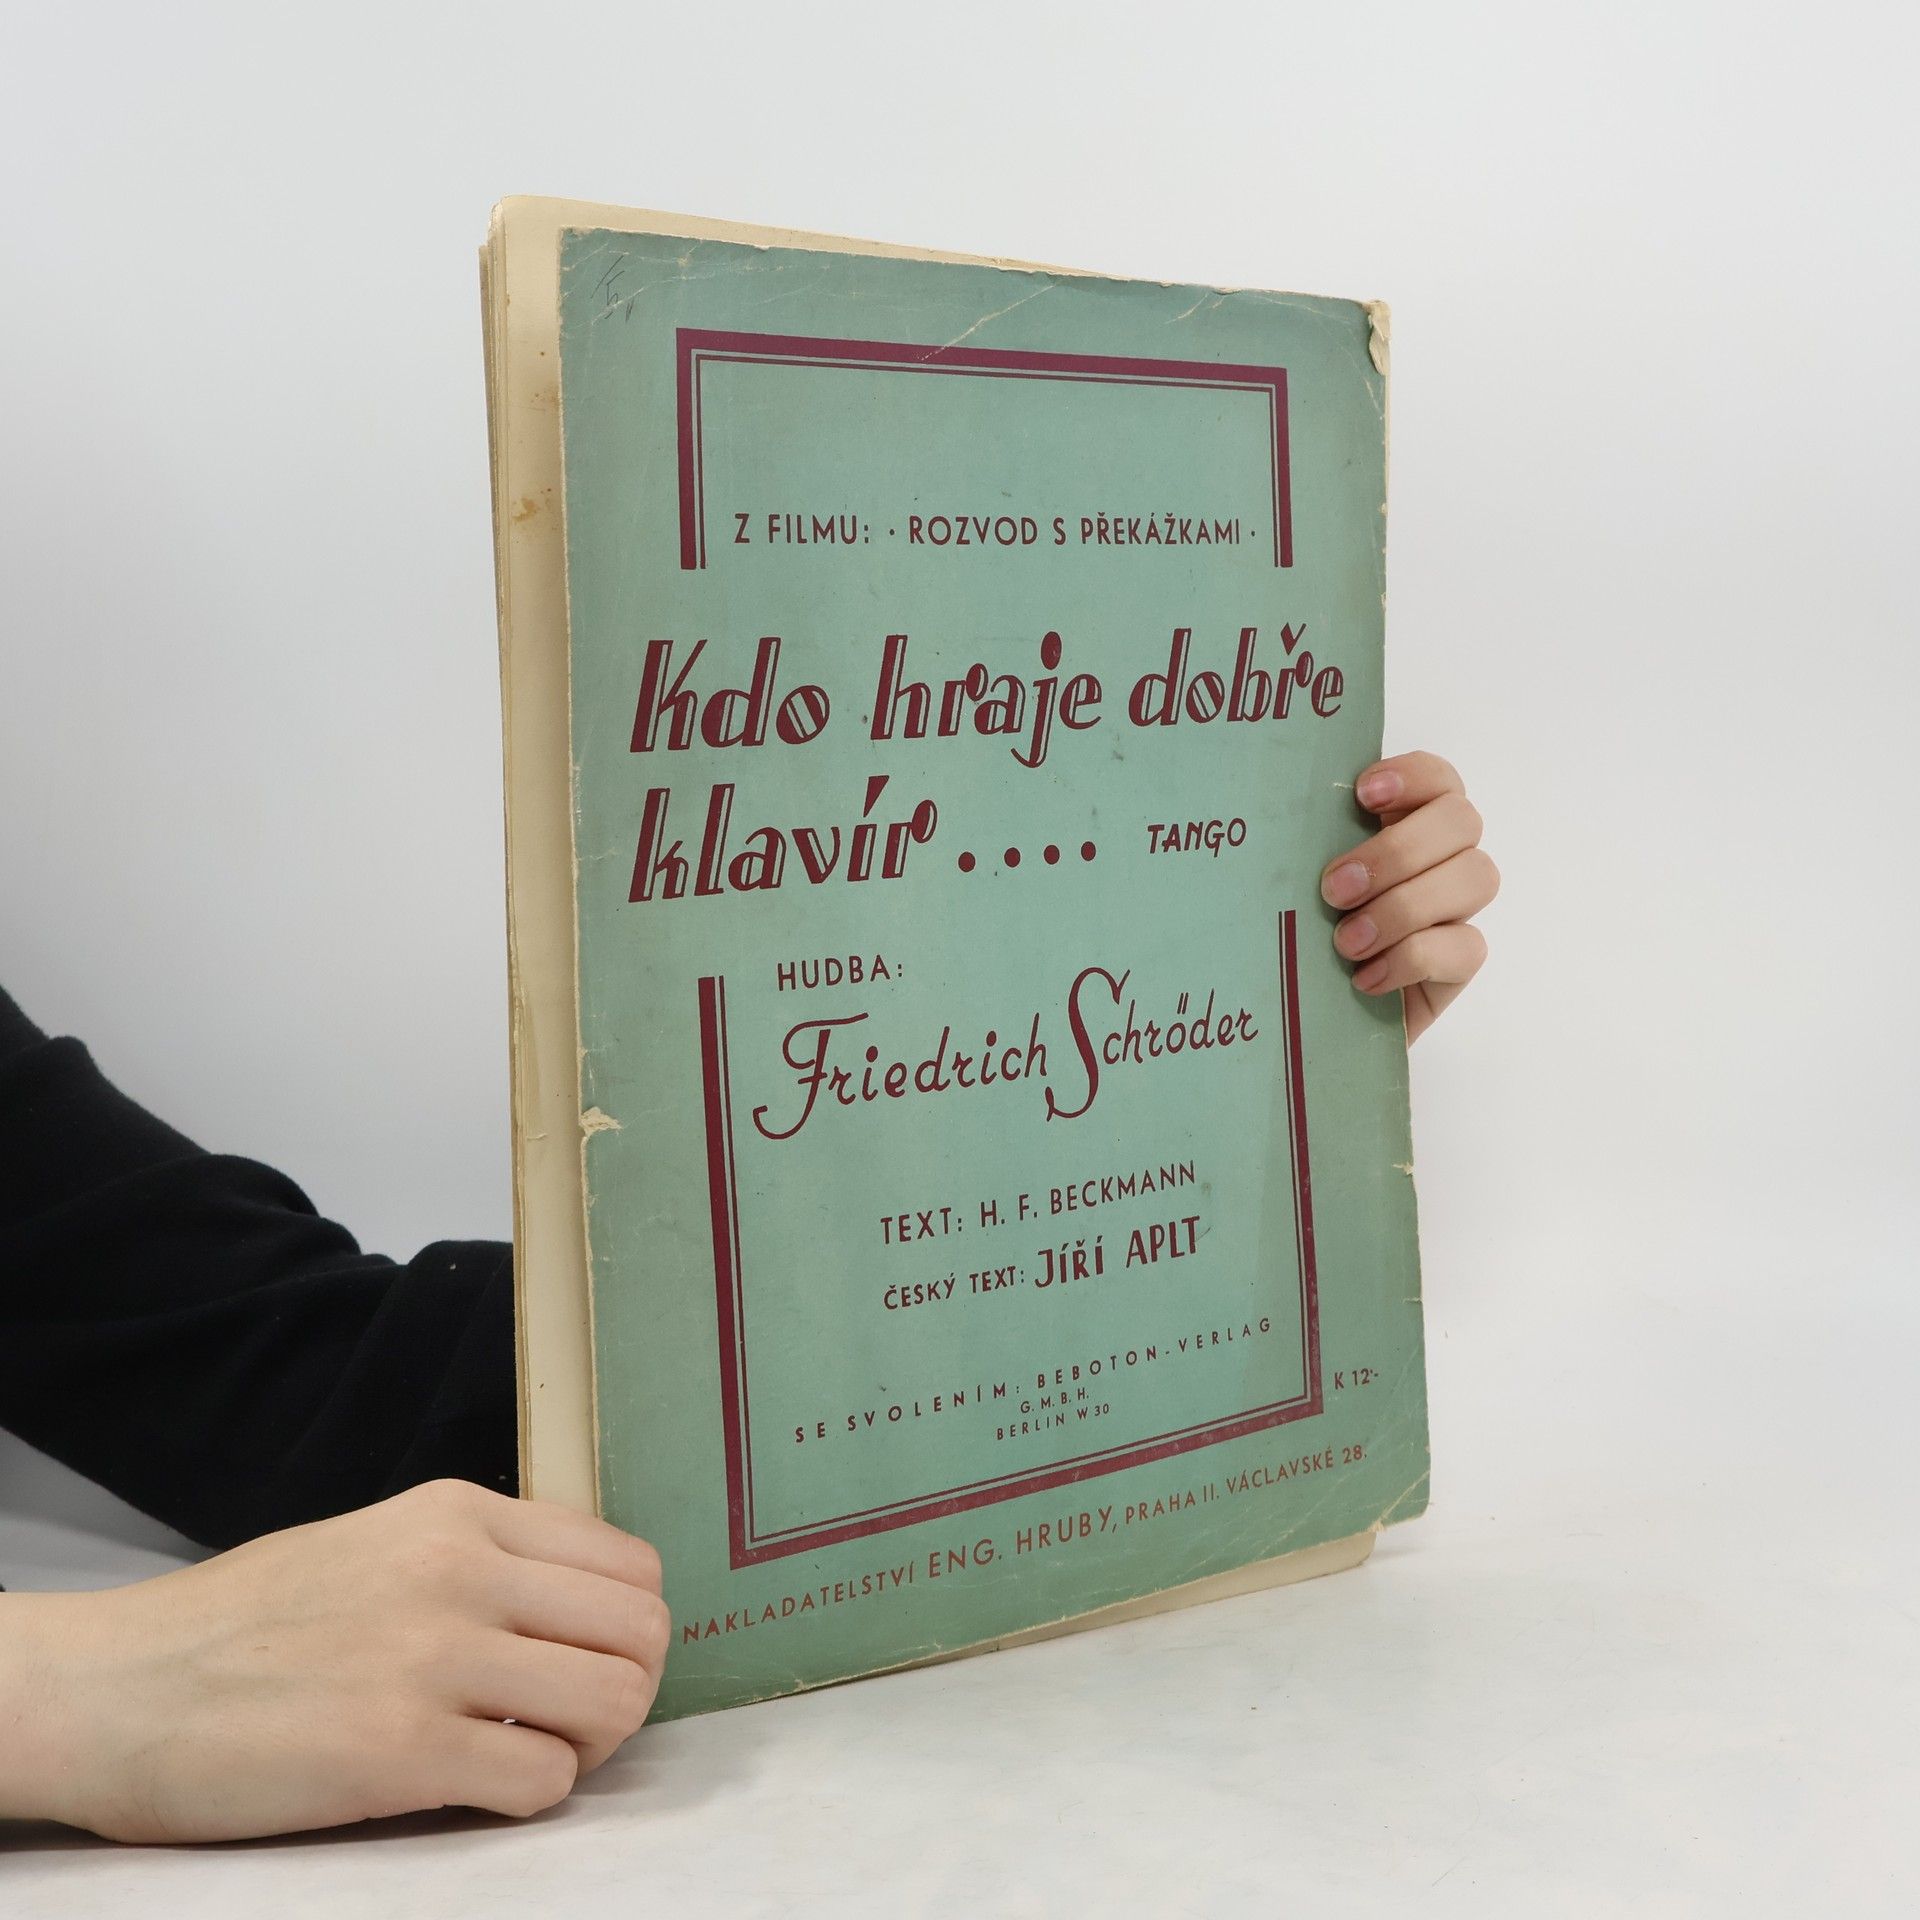 Z FILMU: · ROZVOD S PŘEKÁŽKAMI ·
Kdo hraje dobře
klavír .... TANGO
HUDBA:
Friedrich Schröder
TEXT: H. F. BECKMANN
ČESKÝ TEXT: JÍŘÍ APLT
SE SVOLENÍM: BEBOTON-VERLAG
G. M. B. H.
BERLIN W 30
K 12·-
NAKLADATELSTVÍ ENG. HRUBY, PRAHA II. VÁCLAVSKÉ 28.